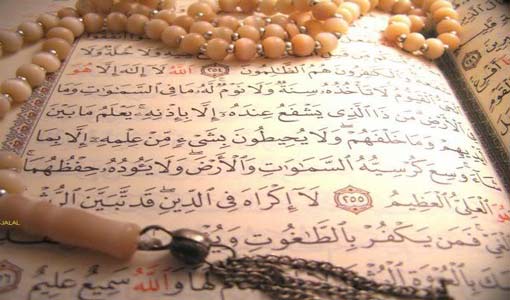 خُلَّةٌ وَلَا
وَٱلْكَٰفِرُونَ هُمُ ٱلظَّٰلِمُونَ ٢٥٤ ٱللَّهُ لَآ إِلَٰهَ إِلَّا هُوَ
لَا تَأْخُذُهُۥ سِنَةٌ وَلَا نَوْمٌ لَّهُۥ مَا فِى ٱلسَّمَٰوَٰتِ وَمَا
ٱلْأَرْضِ مَن ذَا ٱلَّذِى يَشْفَعُ عِندَهُۥٓ إِلَّا بِإِذْنِهِۦ يَعْلَمُ مَا بَيْنَ
أَيْدِيهِمْ وَمَا خَلْفَهُمْ وَلَا يُحِيطُونَ بِشَىْءٍ مِّنْ عِلْمِهِۦٓ إِلَّا بِمَا
شَآءَ وَسِعَ كُرْسِيُّهُ ٱلسَّمَٰوَٰتِ وَٱلْأَرْضَ وَلَا يَـُٔودُهُۥ حِفْظُهُمَا
ٱلْعَلِىُّ ٱلْعَظِيمُ ٢٥٥ لَآ إِكْرَاهَ فِى ٱلدِّينِ قَد تَّبَيَّنَ
فَمَن يَكْفُرْ بِٱلطَّٰغُوتِ
بِٱلْعُرْوَةِ لَهَا وَٱللَّهُ سَمِيعٌ عَلِيمٌ
JALAL